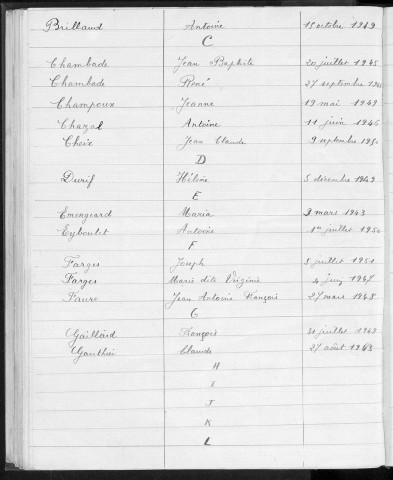 Brillaud Antoine 15 octobre 1949
C
Chambade Jean Baptiste 20 juillet 1945
Chambade René 27 septembre
Champoux Jeanne 19 mai 1949
Chazal Antoine 11 juin 1946
Cheix Jean Claude 9 septembre 1950
D
Durif Hélène 5 décembre 1949
E
Emengeard Maria 9 mars 1943
Eyboulet Antoine 1er juillet 1950
F
Farges Joseph 5 juillet 1951
Farges Marie dite Virginie 4 1947
Faure Jean Antoine François 27 mars 1948
G
Gaillard François 31 juillet 1949
Gauthier Claude 27 août 1943
H
I
J
K
L